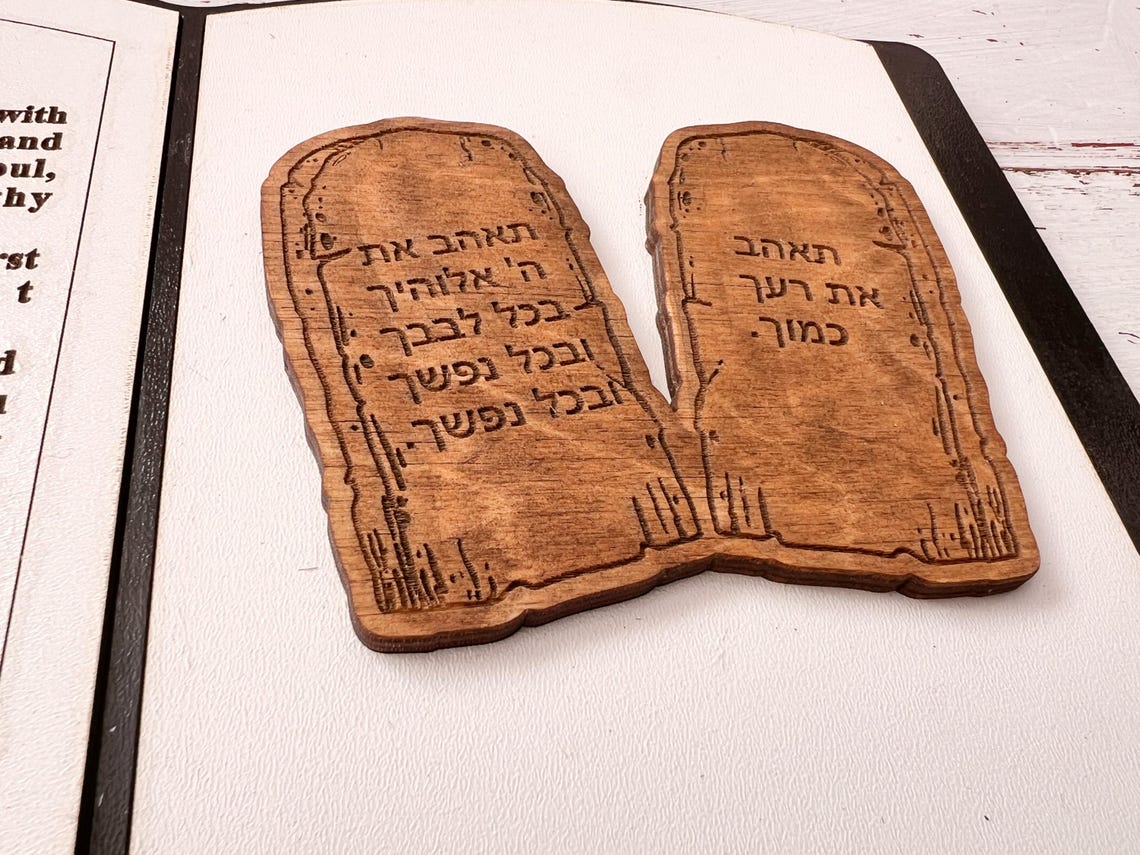 with
and
oul,
hy
rst
t
d
תאהב את
ה' אלוהיך
בכל לבבך
ובכל נפשך
ובכל נפשך.
תאהב
את רעך
כמוך.